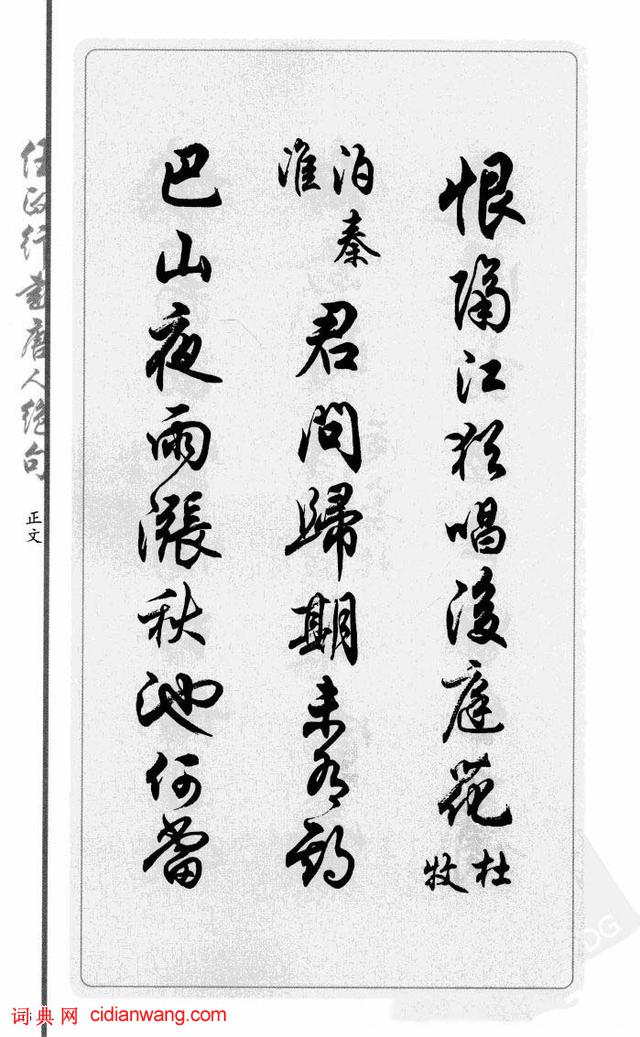 恨隔江猶唱後庭花
杜牧
泊秦淮
君問歸期未有期
巴山夜雨漲秋池何當
任政行書唐人絕句
正文
词典网 cidianwang.com